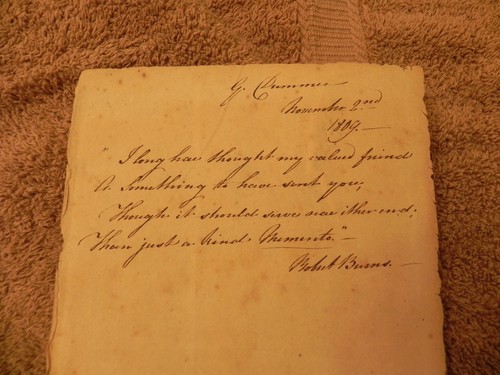 G. Drummer
November 2nd
1809.—
"I long have thought my valued friend
A Something to have sent you;
Though it should serve nae ither end;
Than just a kind Memento."—
Robert Burns.—